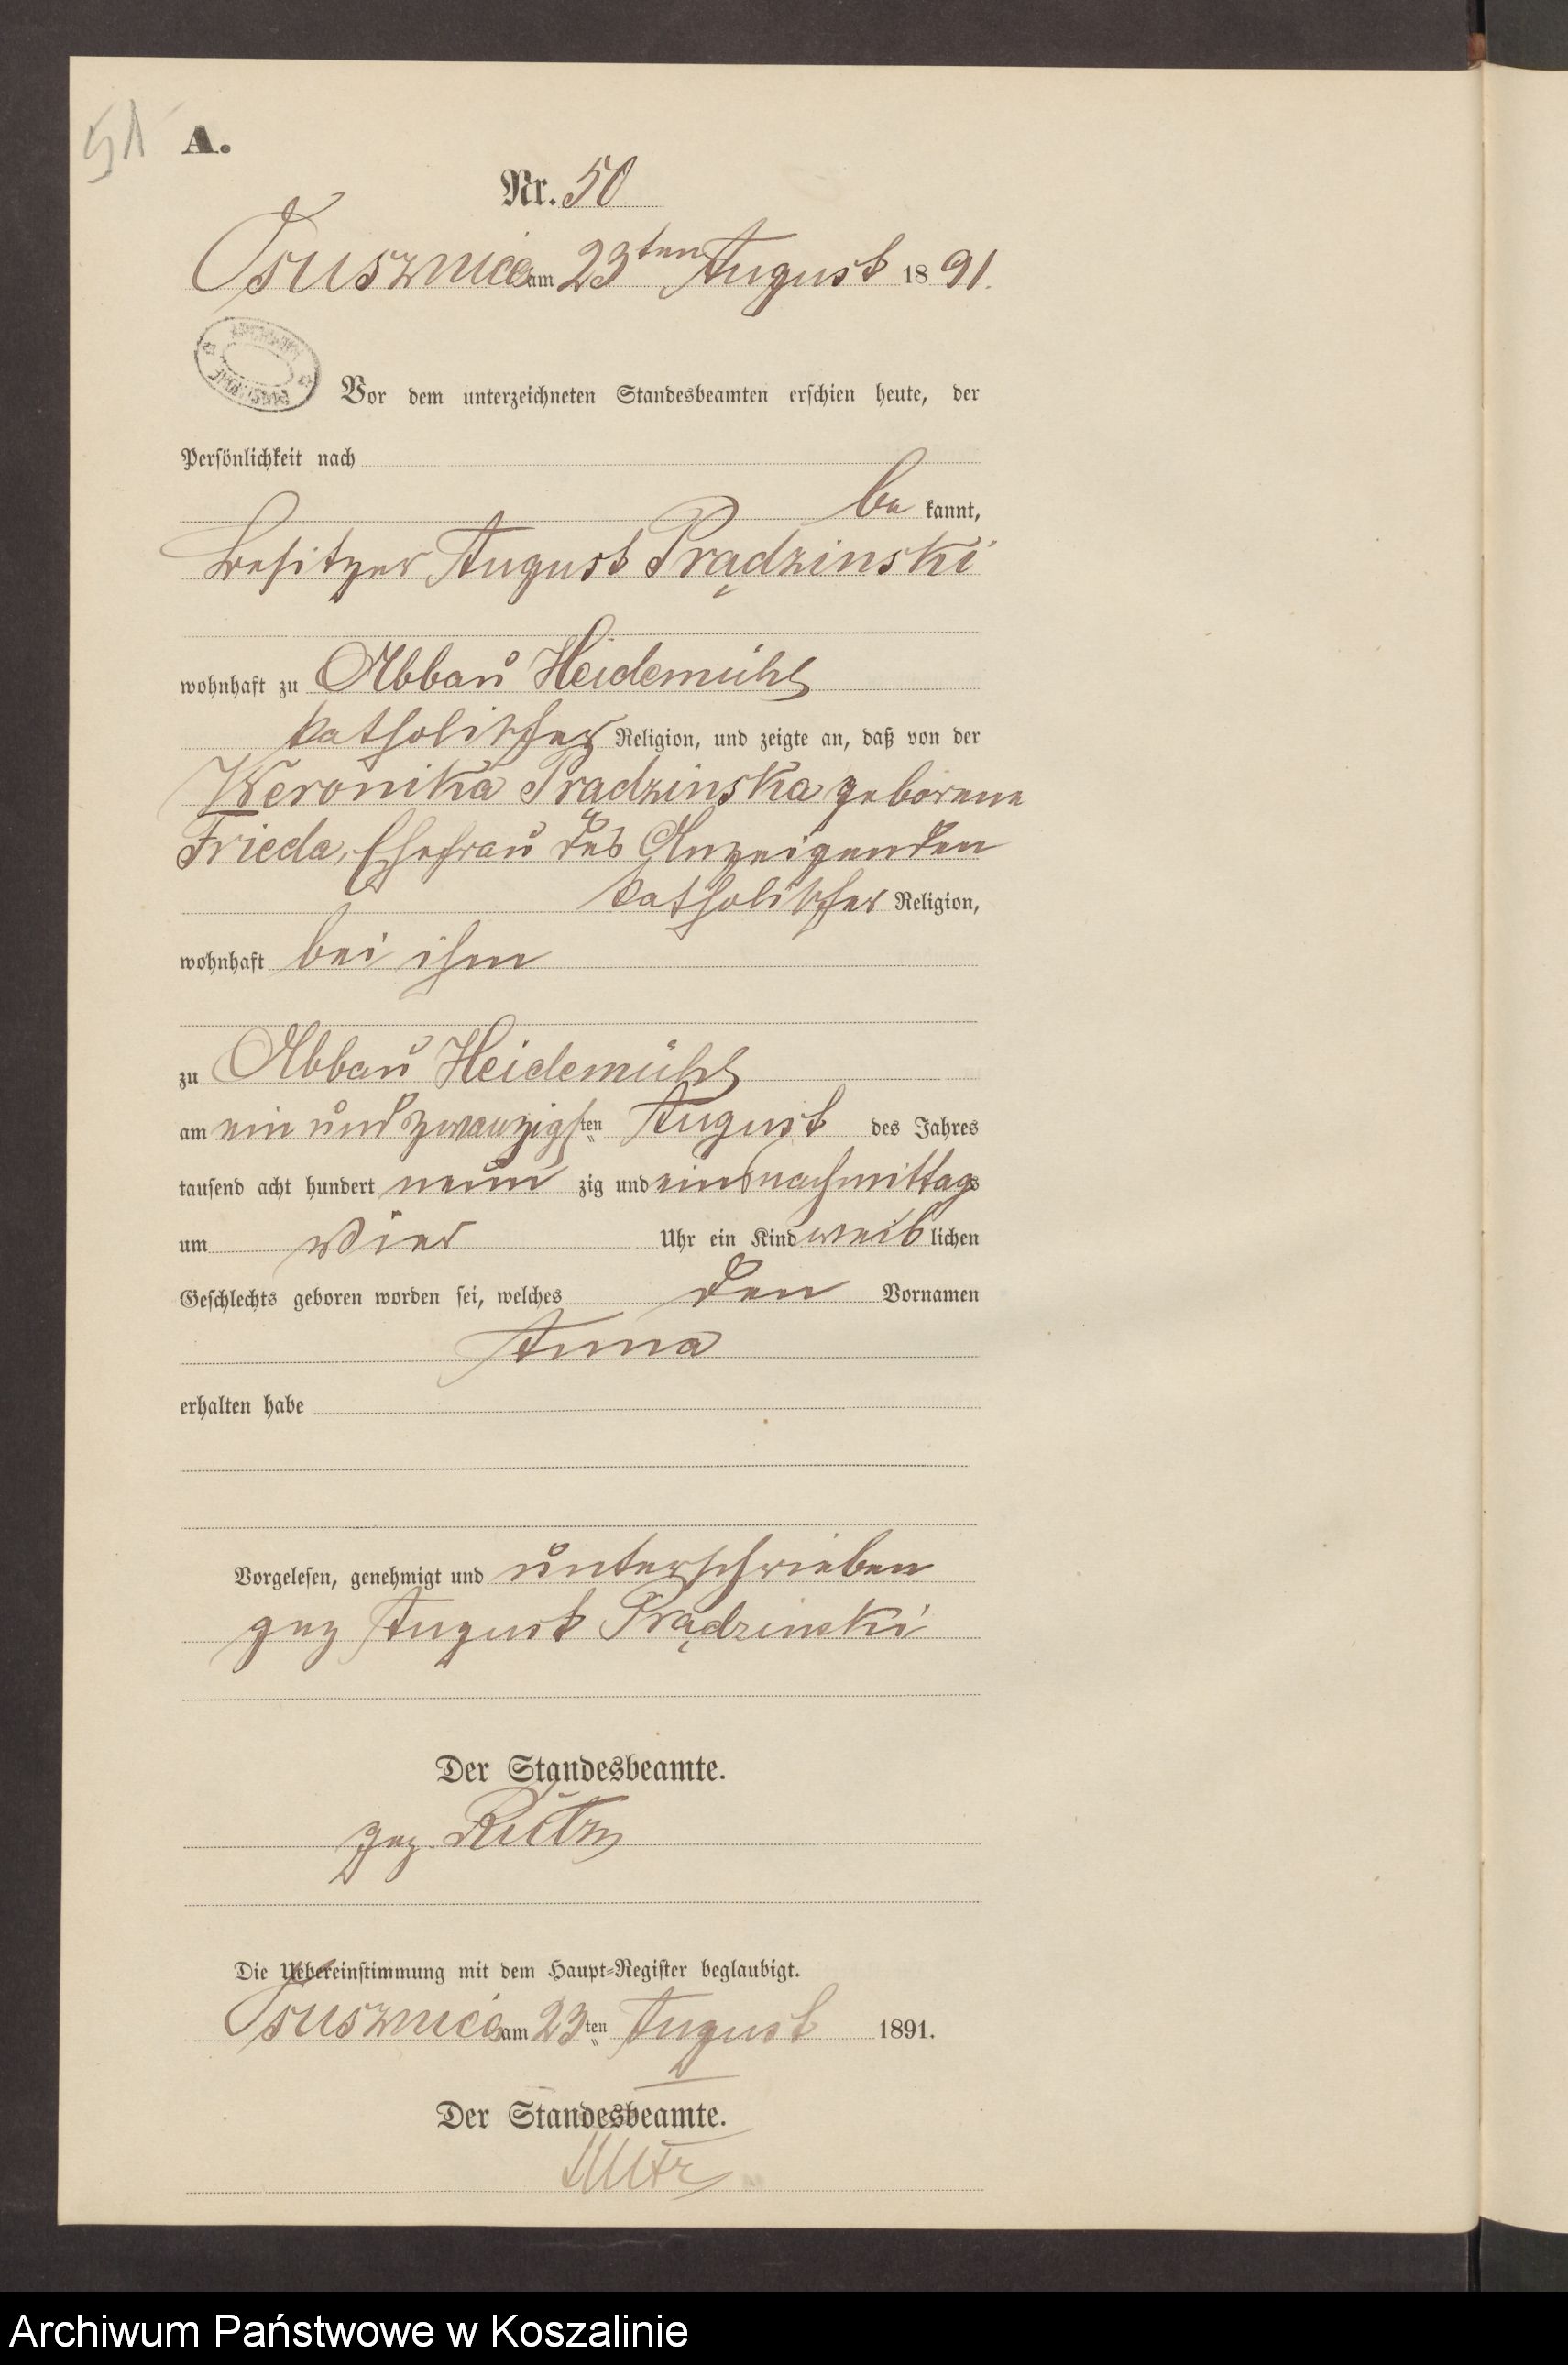 51
A.
Nr. 50
Osusznica am 23ten August 1891.
Vor dem unterzeichneten Standesbeamten erschien heute, der
Persönlichkeit nach
be kannt,
Besitzer August Prądzinski
wohnhaft zu Abbau Heidemühl
katholischer Religion, und zeigte an, daß von der
Weronika Pradzinska geborene
Frieda, Ehefrau des Anzeigenden
katholischer Religion,
wohnhaft bei ihm
zu Abbau Heidemühl
am ein und zwanzigsten August des Jahres
tausend acht hundert neun zig und eins nachmittags
um vier Uhr ein Kind weiblichen
Geschlechts geboren worden sei, welches den Vornamen
Anna
erhalten habe
Vorgelesen, genehmigt und unterschrieben
gez August Prądzinski
Der Standesbeamte.
gez.
Die Uebereinstimmung mit dem Haupt-Register beglaubigt.
Osusznica am 23ten August 1891.
Der Standesbeamte.
Archiwum Państwowe w Koszalinie